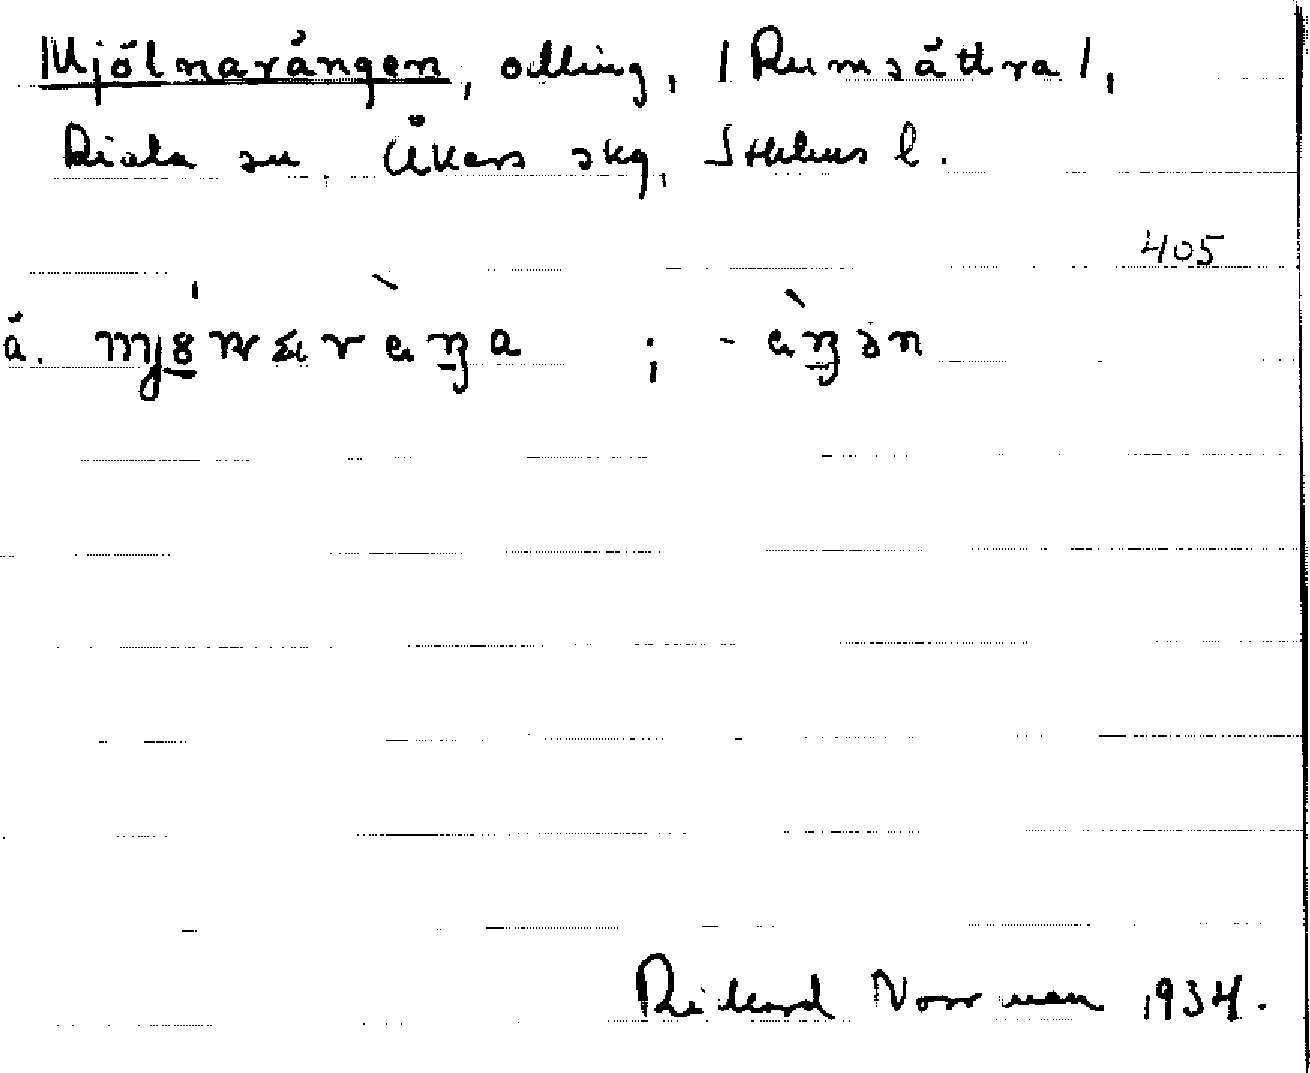 Mjölnarängen, odling, /Rumsättra/,
Riala sn. Åkers skg, Sthlms l.
405
ä.
Rickard Norrman 1934.